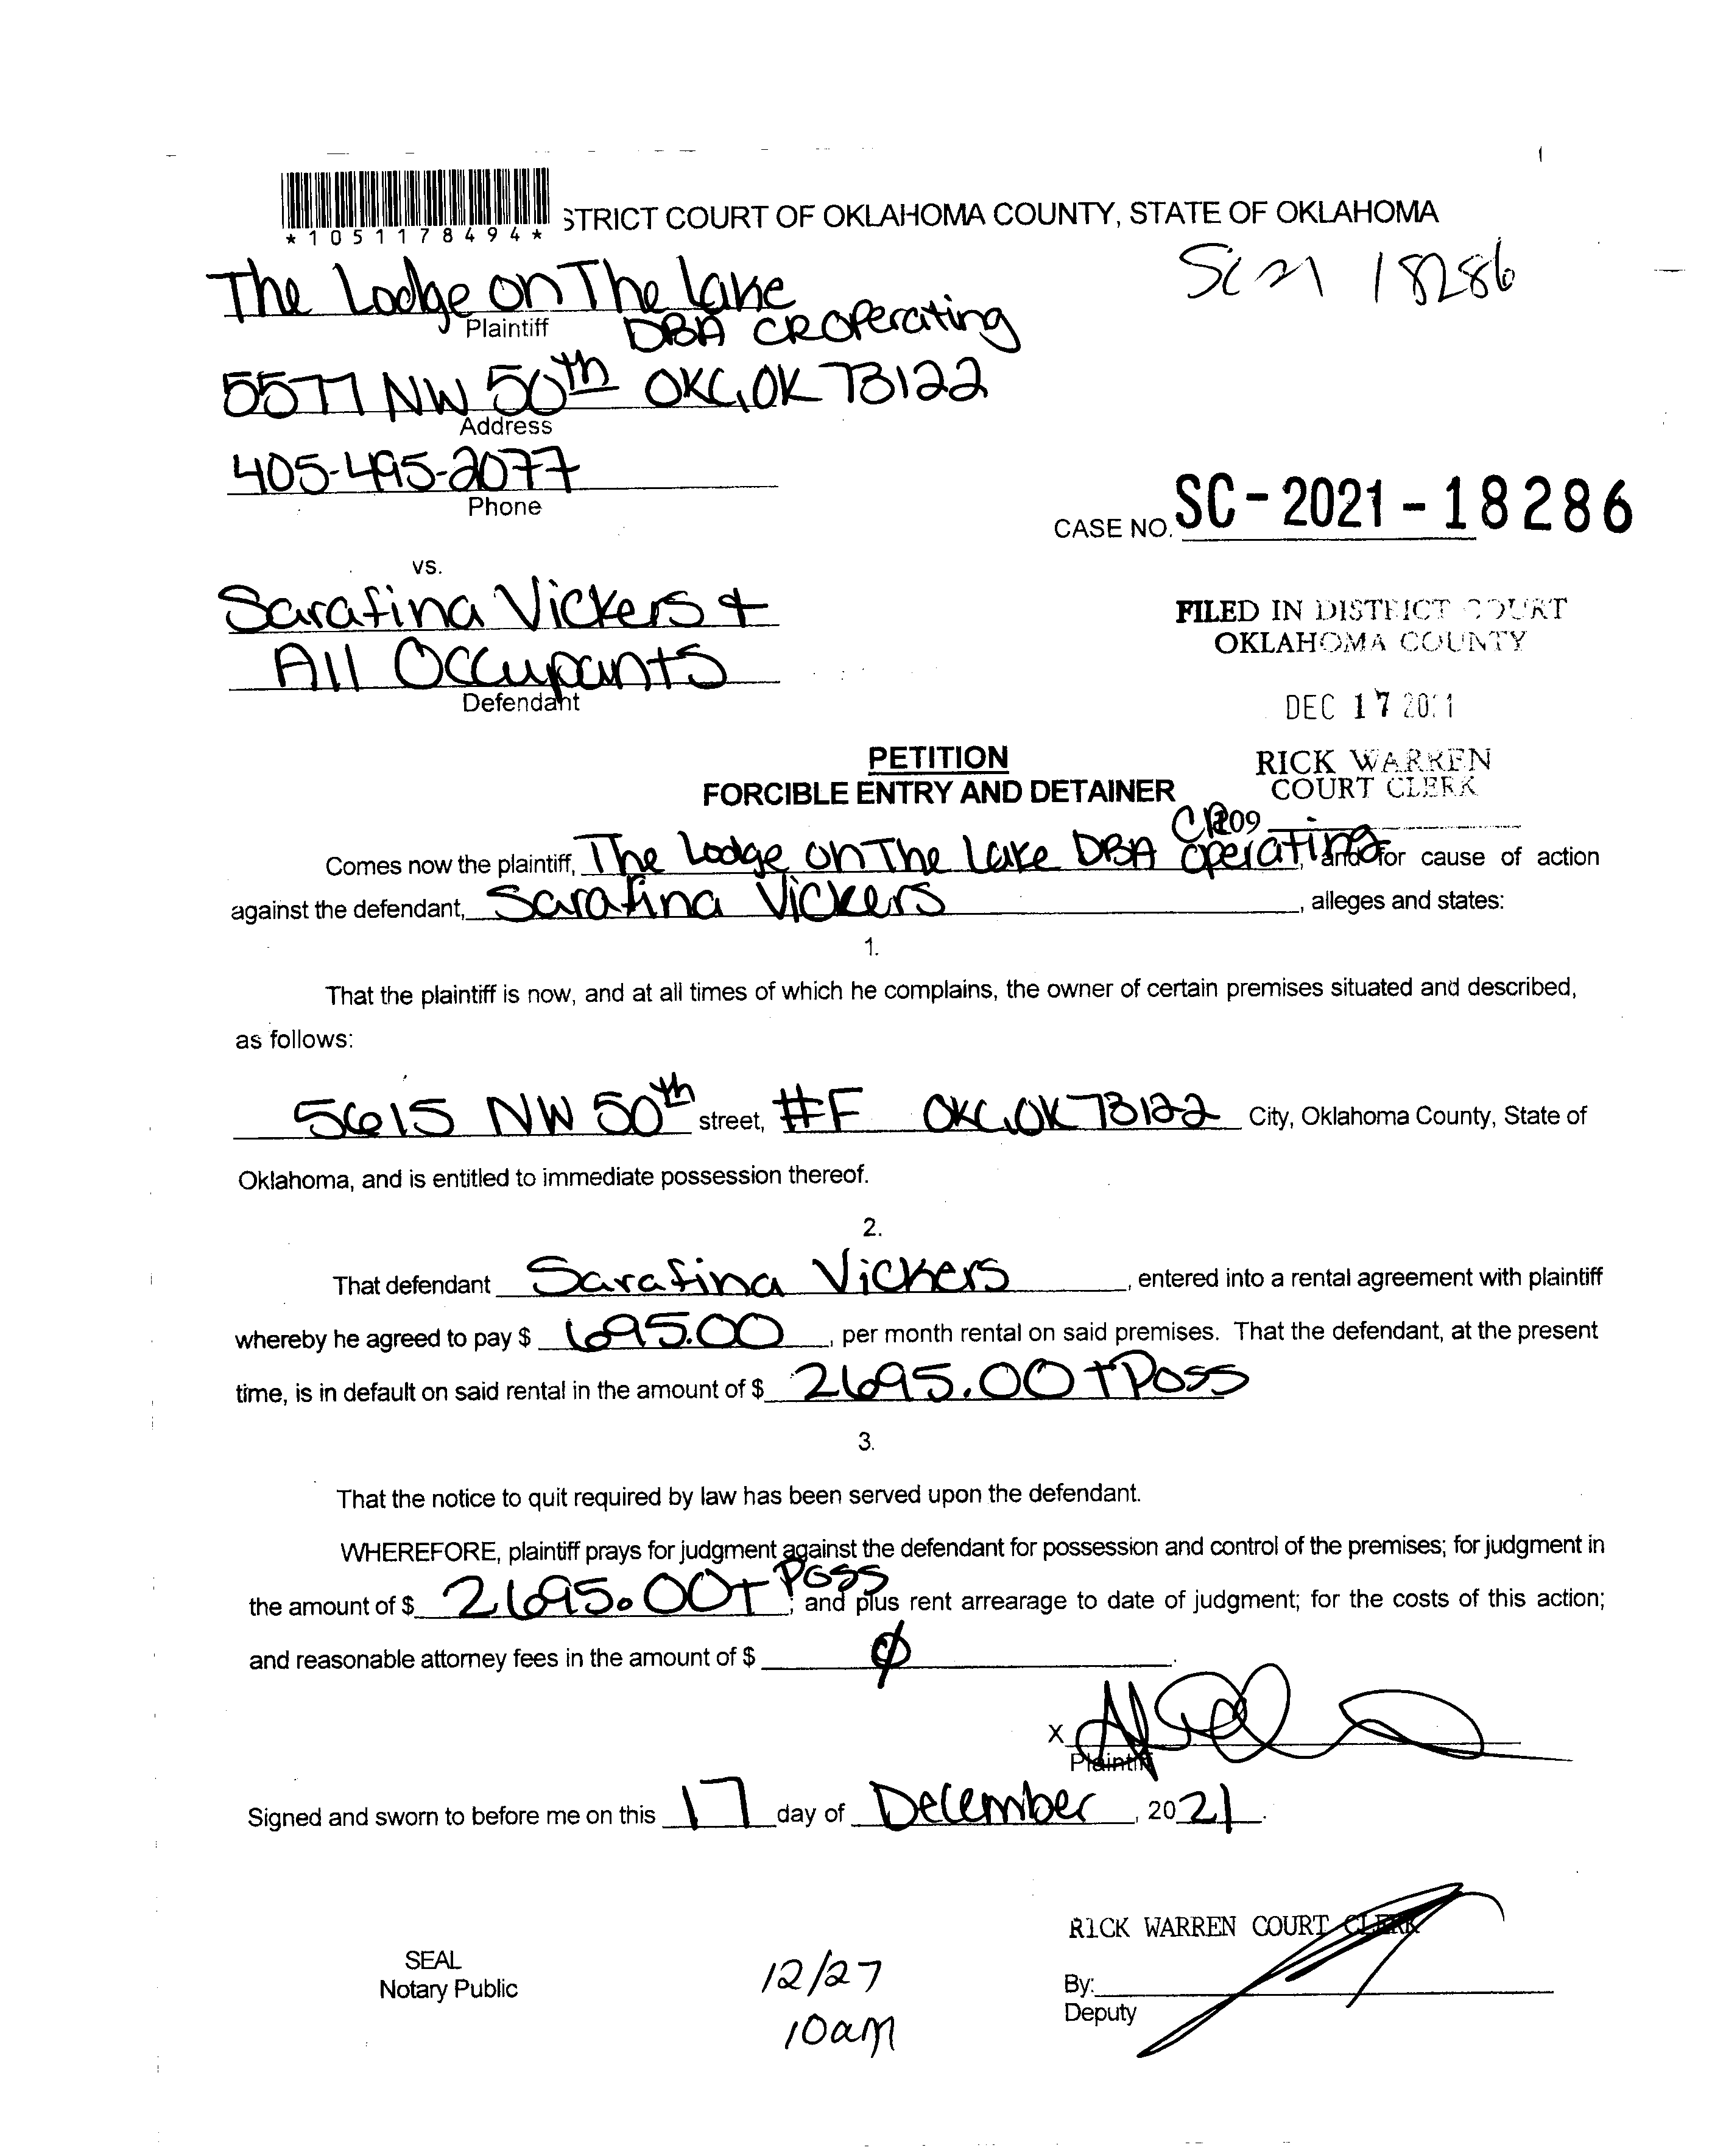 *1051178494*
STRICT COURT OF OKLAHOMA COUNTY, STATE OF OKLAHOMA
SC 21 18286
The Lodge on The Lake
Plaintiff
DBA CR Operating
5577 NW 50th OKC, OK 73122
Address
405-495-2077
Phone
CASE NO. SC-2021-18286
vs.
Sarafina Vickers +
All Occupants
Defendant
FILED IN DISTRICT COURT
OKLAHOMA COUNTY
DEC 17 2021
RICK WARREN
COURT CLERK
PETITION
FORCIBLE ENTRY AND DETAINER
CR 109
Comes now the plaintiff, The Lodge on The Lake DBA Operating, and for cause of action
against the defendant, Sarafina Vickers, alleges and states:
1.
That the plaintiff is now, and at all times of which he complains, the owner of certain premises situated and described,
as follows:
5615 NW 50th street, #F OKC, OK 73122 City, Oklahoma County, State of
Oklahoma, and is entitled to immediate possession thereof.
2.
That defendant Sarafina Vickers, entered into a rental agreement with plaintiff
whereby he agreed to pay $ 695.00, per month rental on said premises. That the defendant, at the present
time, is in default on said rental in the amount of $ 2695.00 + Poss
3.
That the notice to quit required by law has been served upon the defendant.
WHEREFORE, plaintiff prays for judgment against the defendant for possession and control of the premises; for judgment in
the amount of $ 2695.00 + Poss; and plus rent arrearage to date of judgment; for the costs of this action;
and reasonable attorney fees in the amount of $ ∅.
X
Plaintiff
Signed and sworn to before me on this 17 day of December, 2021.
RICK WARREN COURT CLERK
SEAL
Notary Public
12/27
10am
By:
Deputy